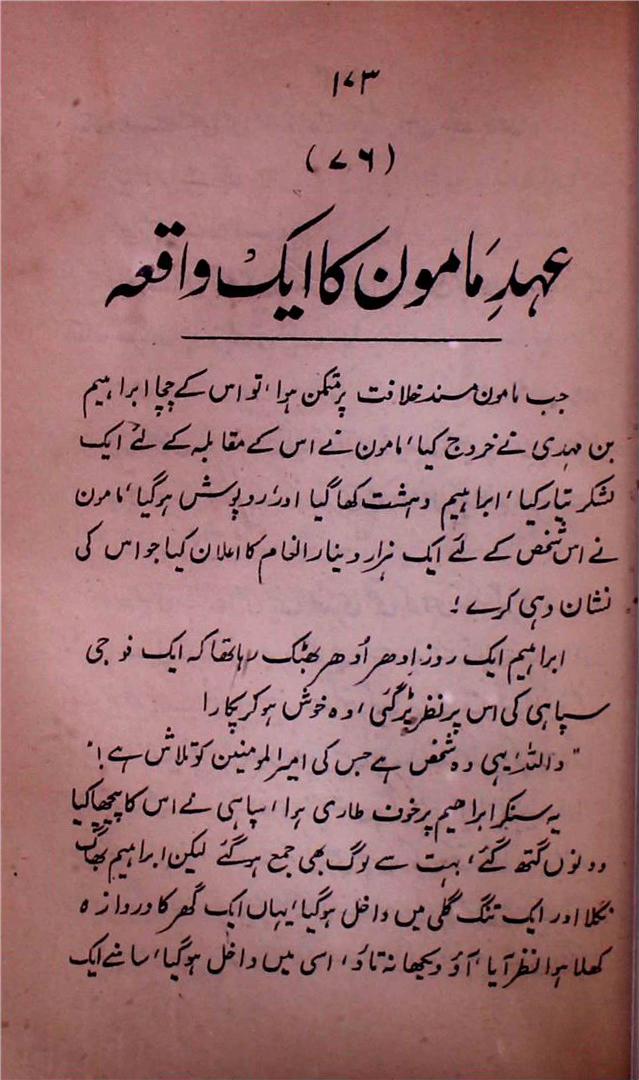 ۱۷۳
(۷۶)
عہدِ مَامون کا ایک واقعہ
جب مامون مسند خلافت پر متمکن ہوا، تو اس کے چچا ابراہیم
بن مہدی نے خروج کیا، مامون نے اس کے مقابلہ کے لئے ایک
لشکر تیار کیا، ابراہیم دہشت کھا گیا اور روپوش ہو گیا، مامون
نے اس شخص کے لئے ایک ہزار دینار انعام کا اعلان کیا جو اس کی
نشان دہی کرے !
ابراہیم ایک روز اِدھر اُدھر بھٹک رہا تھا کہ ایک فوجی
سپاہی کی اس پر نظر پڑ گئی، وہ خوش ہو کر پکارا
"واللہ، یہی وہ شخص ہے جس کی امیرالمومنین کو تلاش ہے !"
یہ سنکر ابراھیم پر خوف طاری ہوا، سپاہی نے اس کا پیچھا کیا
دونوں گتھ گئے، بہت سے لوگ بھی جمع ہو گئے لیکن ابراہیم بھاگ
نکلا اور ایک تنگ گلی میں داخل ہو گیا، یہاں ایک گھر کا دروازہ
کھلا ہوا نظر آیا، آؤ دیکھا نہ تاؤ، اسی میں داخل ہو گیا، سامنے ایک